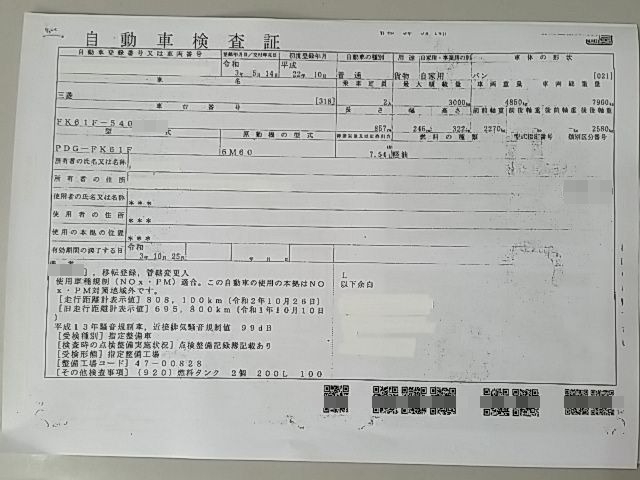 自動車検査証
自動車登録番号又は車両番号 登録年月日/交付年月日 初度登録年月 自動車の種別 用途 自家用・事業用の別 車体の形状
令和 平成
3年 5月14日 22年 10月 普通 貨物 自家用 バン [021]
車名 乗車定員 最大積載量 車両重量 車両総重量
三菱 [318] 2人 3000kg 4850kg 7960kg
車台番号 長さ 幅 高さ 前前軸重 前後軸重 後前軸重 後後軸重
FK61F-540 857cm 246cm 322cm 2270kg -kg -kg 2580kg
型式 原動機の型式 燃料の種類 型式指定番号 類別区分番号
PDG-FK61F 6M60 7.54 軽油
所有者の氏名又は名称
所有者の住所
使用者の氏名又は名称 ***
使用者の住所 ***
使用の本拠の位置 ***
有効期間の満了する日 令和
3年 10月 25日
備考
, 移転登録, 管轄変更入
使用車種規制(NOx・PM)適合。この自動車の使用の本拠はNO
x・PM対策地域外です。
[走行距離計表示値] 808,100km (令和2年10月26日)
[旧走行距離計表示値] 695,800km (令和1年10月10日)
平成13年騒音規制車, 近接排気騒音規制値 99dB
[受検種別] 指定整備車
[検査時の点検整備実施状況] 点検整備記録簿記載あり
[受検形態] 指定整備工場
[整備工場コード] 47-00828
[その他検査事項] (920) 燃料タンク 2個 200L 100
L
以下余白